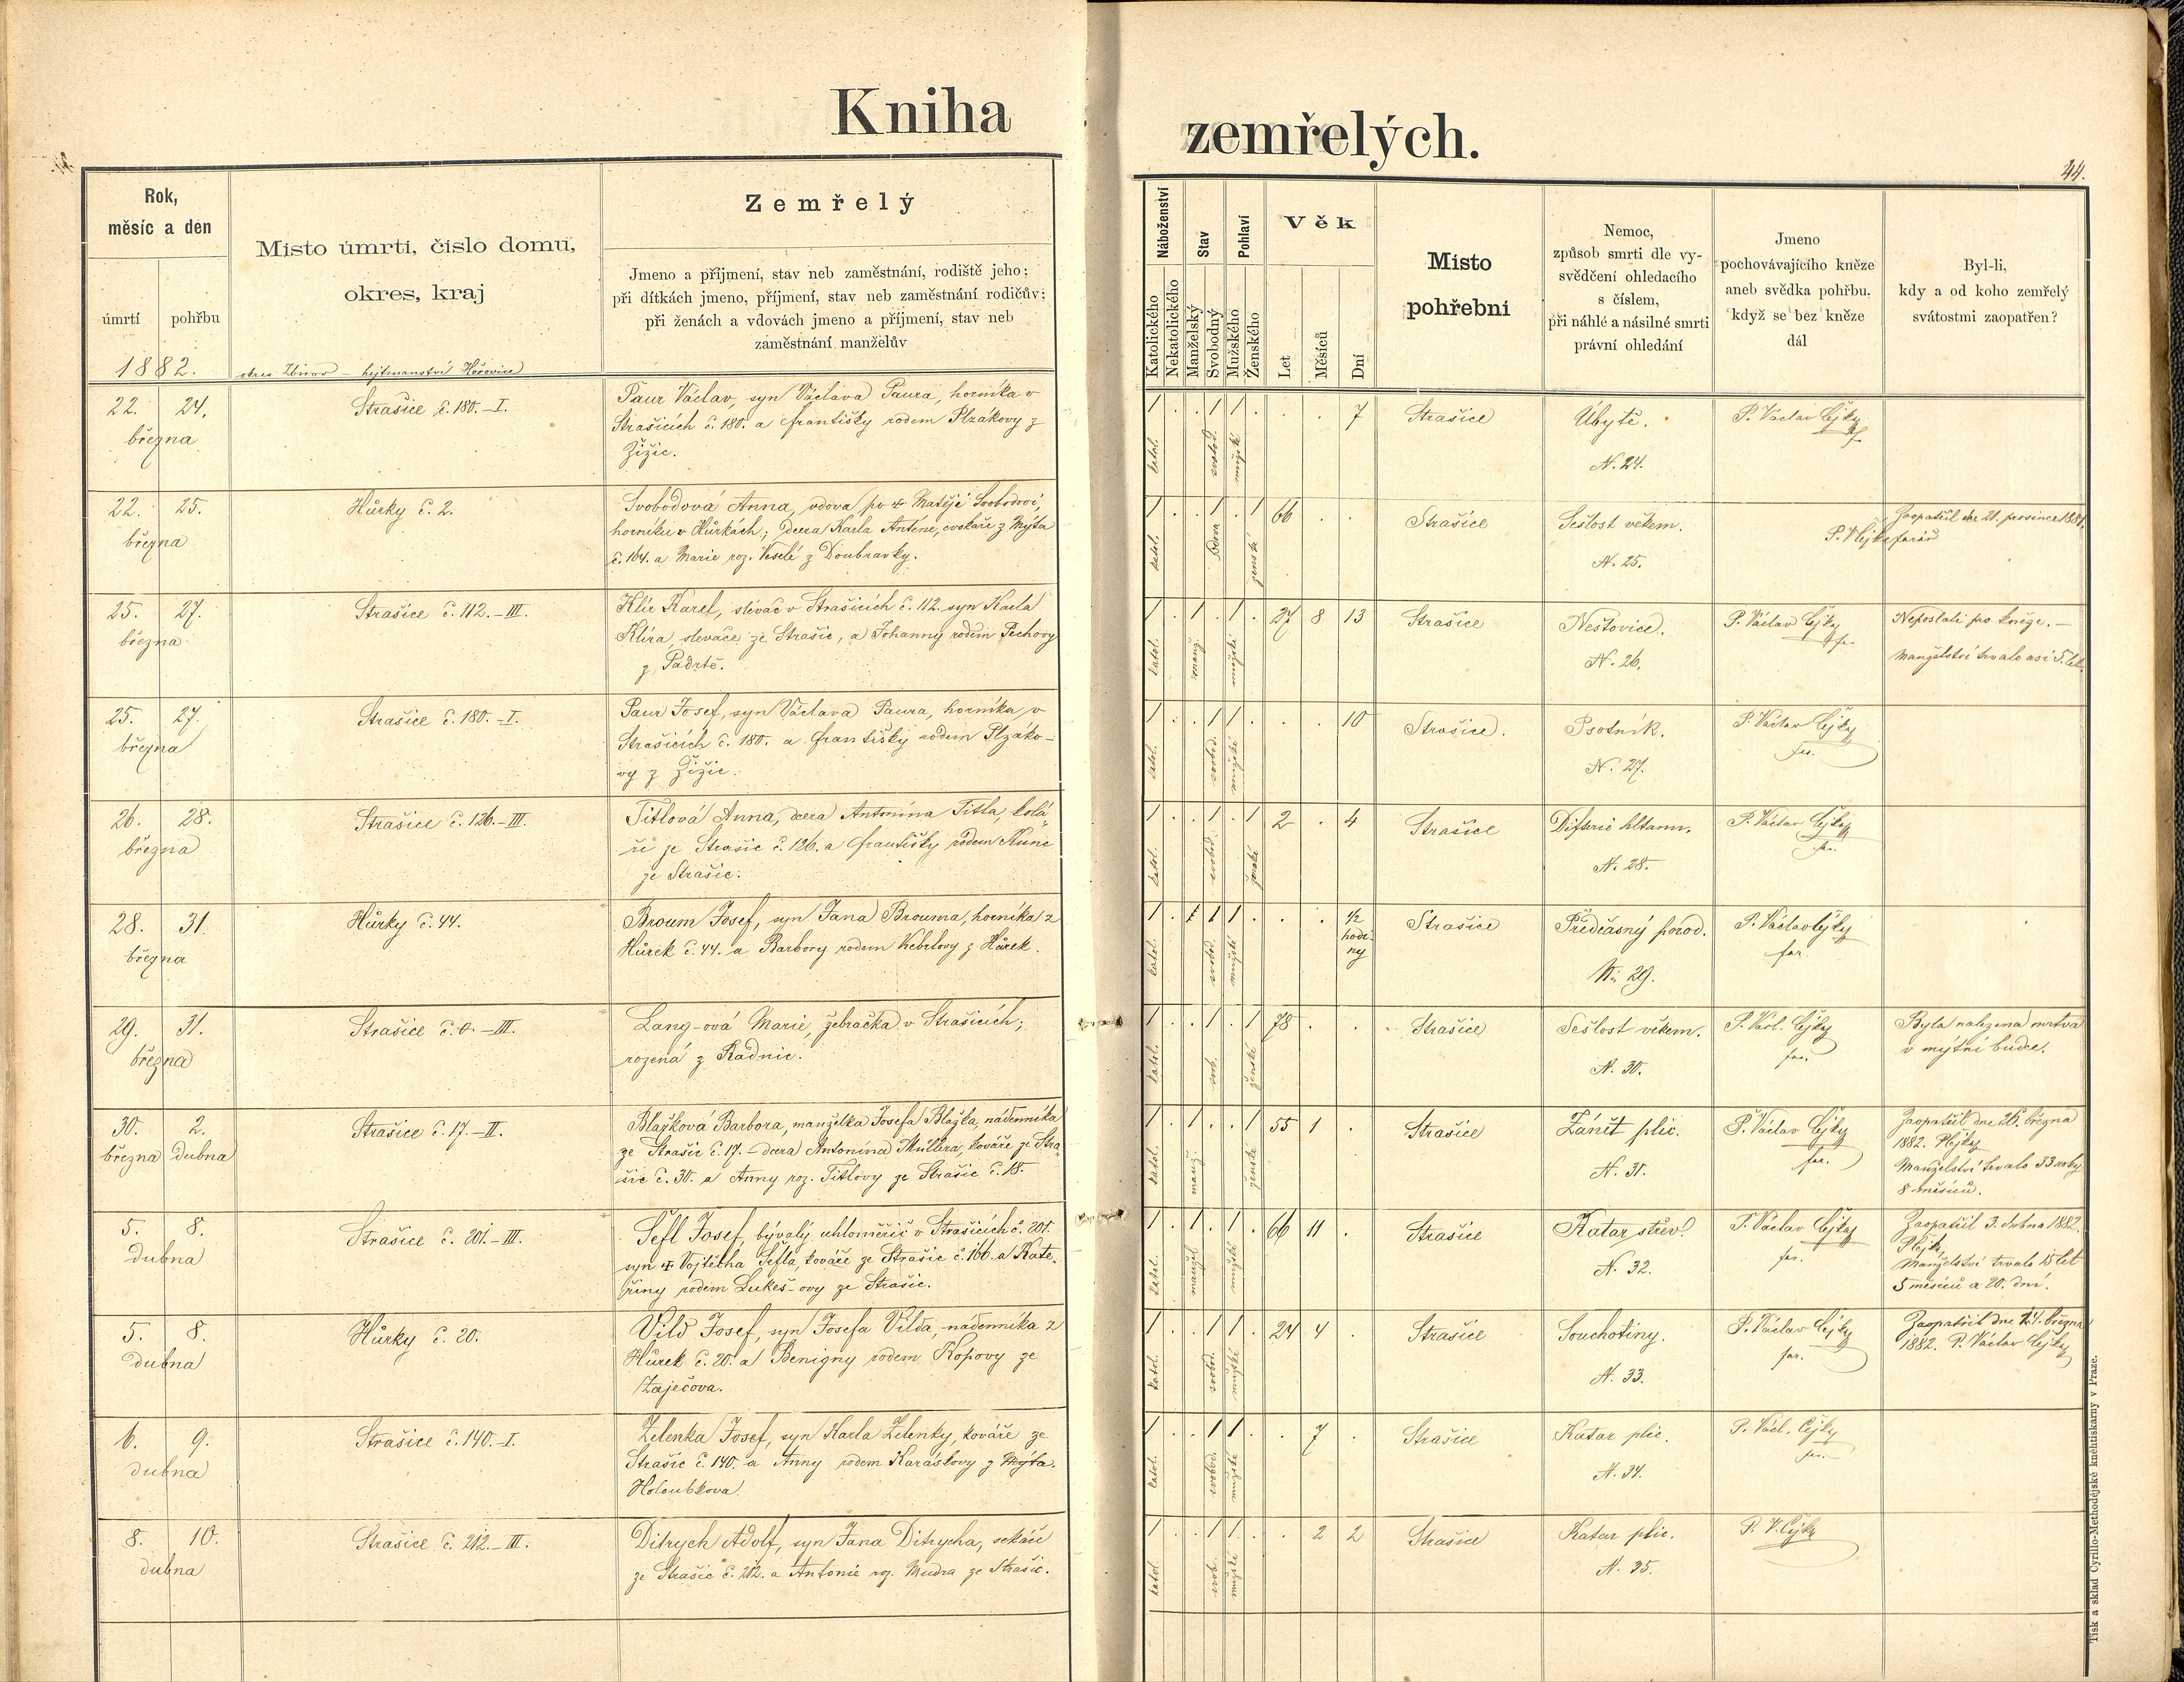 Kniha
zemřelých.
44.
Rok,
měsíc a den
úmrtí
pohřbu
1882.
Místo úmrtí, číslo domu,
okres, kraj
okres Zbirov – hejtmanství Hořovice
Zemřelý
Jmeno a příjmení, stav neb zaměstnání, rodiště jeho;
při dítkách jmeno, příjmení, stav neb zaměstnání rodičův;
při ženách a vdovách jmeno a příjmení, stav neb
zaměstnání manželův
Náboženství
Katolického
Nekatolického
Stav
Manželský
Svobodný
Pohlaví
Mužského
Ženského
Věk
Let
Měsíců
Dní
Místo
pohřební
Nemoc,
způsob smrti dle vy-
svědčení ohledacího
s číslem,
při náhlé a násilné smrti
právní ohledání
Jmeno
pochovávajícího kněze
aneb svědka pohřbu,
když se bez kněze
dál
Byl-li,
kdy a od koho zemřelý
svátostmi zaopatřen?
22. 24.
března
Strašice č. 180.–I.
Paur Václav, syn Václava Paura, horníka v
Strašicích č. 180. a Františky rodem Plzákovy z
Žižic.
1 . . 1 1 . . . 7
katol. svobod. mužské
Strašice
Úbytě.
N. 24.
P. Václav Cejky
22. 25.
března
Hůrky č. 2.
Svobodová Anna, vdova po Matěji Svobodovi,
horníku v Hůrkách; dcera Karla Anténe, cvokaře z Mýta
č. 164. a Marie roz. Veselé z Doubravky.
1 . . 1 . 1 66 . .
katol. vdova ženské
Strašice
Sešlost věkem.
N. 25.
Zaopatřil dne 21. prosince 1881.
farář
25. 27.
března
Strašice č. 112.–III.
Klír Karel, slévač v Strašicích č. 112. syn Karla
Klíra, slevače ze Strašic, a Johanny rodem Pechovy
z Padrtě.
1 . 1 . 1 . 27 8 13
katol. manž. mužské
Strašice
Neštovice.
N. 26.
P. Václav Cejky
far.
Neposlali pro kněze.–
Manželství trvalo asi 5 let.
25. 27.
března
Strašice č. 180.–I.
Paur Josef, syn Václava Paura, horníka v
Strašicích č. 180. a Františky rodem Plzáko-
vy z Žižic.
1 . . 1 1 . . . 10
katol. svobod. mužské
Strašice.
Psotník.
N. 27.
P. Václav Cejky
far.
26. 28.
března
Strašice č. 126.–III.
Titlová Anna, dcera Antonína Titla, kolá-
ře ze Strašic č. 126. a Františky rodem Kunc
ze Strašic.
1 . . 1 . 1 2 . 4
katol. svobod. ženské
Strašice
Difterie hltanu.
N. 28.
P. Václav Cejky
far.
28. 31.
března
Hůrky č. 44.
Broum Josef, syn Jana Brouma, horníka z
Hůrek č. 44. a Barbory rodem Kebrlovy z Hůrek.
1/2
hodi-
ny
katol. svobod. mužské
Strašice
Předčasný porod.
N. 29.
P. Václav Cejky
far.
29. 31.
března
Strašice č. 0.–III.
Lang-ová Marie, žebračka v Strašicích;
rozená z Radnic.
1 . . 1 . 1 78 . .
katol. svob. ženské
Strašice
Sešlost věkem.
N. 30.
P. Václ. Cejky
far.
Byla nalezena mrtvá
v mýtní budce.
30. 2.
března dubna
Strašice č. 17.–II.
Blažková Barbora, manželka Josefa Blažka, nádenníka
ze Strašic č. 17. – dcera Antonína Müllera, kováře ze Stra-
šic č. 30. a Anny roz. Titlovy ze Strašic č. 18.
1 . 1 . . 1 55 1 .
katol. manž. ženské
Strašice
Zánět plic.
N. 31.
P. Václav Cejky
far.
Zaopatřil dne 26. března
1882.
Manželství trvalo 33 roky
8 měsíců.
5. 8.
dubna
Strašice č. 201.–III.
Šefl Josef, bývalý uhloměřič v Strašicích č. 201.
syn Vojtěcha Šefla, kováře ze Strašic č. 166. a Kate-
řiny rodem Lukeš-ovy ze Strašic.
1 . 1 . 1 . 66 11 .
katol. manžel. mužské
Strašice
Katar střev.
N. 32.
P. Václav Cejky
far.
Zaopatřil 3. dubna 1882.
Manželství trvalo 15 let
5 měsíců a 20. dní.
5. 8.
dubna
Hůrky č. 20.
Vild Josef, syn Josefa Vilda, nádenníka z
Hůrek č. 20. a Benigny rodem Kopovy ze
Zaječova.
1 . . 1 1 . 24 4 .
katol. svobod. mužské
Strašice
Souchotiny.
N. 33.
P. Václav Cejky
far.
Zaopatřil dne 24. března
1882. P. Václav Cejky
6. 9.
dubna
Strašice č. 140.–I.
Zelenka Josef, syn Karla Zelenky, kováře ze
Strašic č. 140. a Anny rodem Karáskovy z Mýta.
Holoubkova.
1 . . 1 1 . . 7 .
katol. svobod. mužské
Strašice
Katar plic.
N. 34.
P. Václ. Cejky
far.
8. 10.
dubna
Strašice č. 212.–III.
Ditrych Adolf, syn Jana Ditrycha, sekáče
ze Strašic č. 212. a Antonie roz. Mudra ze Strašic.
1 . . 1 1 . . 2 2
katol. svob. mužské
Strašice
Katar plic.
N. 35.
P. V. Cejky
Tisk a sklad Cyrillo-Methodějské kněhtiskárny v Praze.